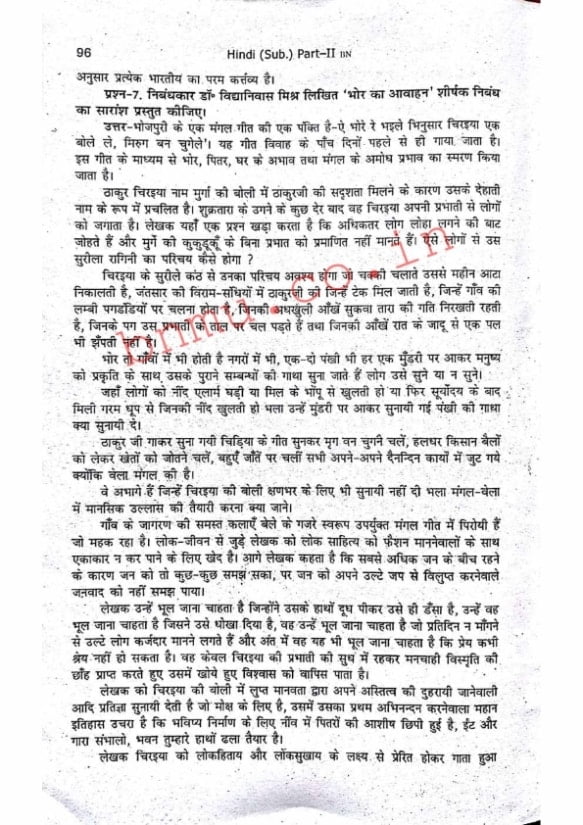 96 Hindi (Sub.) Part–II BN
अनुसार प्रत्येक भारतीय का परम कर्त्तव्य है।
प्रश्न-7. निबंधकार डॉ॰ विद्यानिवास मिश्र लिखित 'भोर का आवाहन' शीर्षक निबंध
का सारांश प्रस्तुत कीजिए।
उत्तर-भोजपुरी के एक मंगल गीत की एक पंक्ति है-ऐ भोरे रे भइले भिनुसार चिरइया एक
बोले ले, मिरुग बन चुगेले'। यह गीत विवाह के पाँच दिनों पहले से ही गाया जाता है।
इस गीत के माध्यम से भोर, पितर, घर के अभाव तथा मंगल के अमोध प्रभाव का स्मरण किया
जाता है।
ठाकुर चिरइया नाम मुर्गा की बोली में ठाकुरजी की सदृशता मिलने के कारण उसके देहाती
नाम के रूप में प्रचलित है। शुक्रतारा के उगने के कुछ देर बाद वह चिरइया अपनी प्रभाती से लोगों
को जगाता है। लेखक यहाँ एक प्रश्न खड़ा करता है कि अधिकतर लोग लोहा लगने की बाट
जोहते हैं और मुर्गे की कुकुडूकूँ के बिना प्रभात को प्रमाणित नहीं मानते हैं। ऐसे लोगों से उस
सुरीला रागिनी का परिचय कैसे होगा ?
चिरइया के सुरीले कंठ से उनका परिचय अवश्य होगा जो चक्की चलाते उससे महीन आटा
निकालती है, जंतसार की विराम-संधियों में ठाकुरजी को जिन्हें टेक मिल जाती है, जिन्हें गाँव की
लम्बी पगडंडियों पर चलना होता है, जिनकी अधखुली आँखें सुकवा तारा की गति निरखती रहती
है, जिनके पग उस प्रभाती के ताल पर चल पड़ते हैं तथा जिनकी आँखें रात के जादू से एक पल
भी झँपती नहीं है।
भोर तो गाँवों में भी होती है नगरों में भी, एक-दो पंखी भी हर एक मुँडरी पर आकर मनुष्य
को प्रकृति के साथ उसके पुराने सम्बन्धों की गाथा सुना जाते हैं लोग उसे सुने या न सुने।
जहाँ लोगों को नींद एलार्म घड़ी या मिल के भोंपू से खुलती हो या फिर सूर्योदय के बाद
मिली गरम धूप से जिनकी नींद खुलती हो भला उन्हें मुंडरी पर आकर सुनायी गई पंखी की गाथा
क्या सुनायी दे।
ठाकुर जी गाकर सुना गयी चिड़िया के गीत सुनकर मृग वन चुगने चलें, हलधर किसान बैलों
को लेकर खेतों को जोतने चलें, बहुएँ जाँते पर चलीं सभी अपने-अपने दैनन्दिन कार्यों में जुट गये
क्योंकि वेला मंगल की है।
वे अभागे हैं जिन्हें चिरइया की बोली क्षणभर के लिए भी सुनायी नहीं दी भला मंगल-वेला
में मानसिक उल्लास की तैयारी करना क्या जाने।
गाँव के जागरण की समस्त कलाएँ बेले के गजरे स्वरूप उपर्युक्त मंगल गीत में पिरोयी हैं
जो महक रहा है। लोक-जीवन से जुड़े लेखक को लोक साहित्य को फैशन माननेवालों के साथ
एकाकार न कर पाने के लिए खेद है। आगे लेखक कहता है कि सबसे अधिक जन के बीच रहने
के कारण जन को तो कुछ-कुछ समझ सका, पर जन को अपने उल्टे जप से विलुप्त करनेवाले
जनवाद को नहीं समझ पाया।
लेखक उन्हें भूल जाना चाहता है जिन्होंने उसके हाथों दूध पीकर उसे ही डँसा है, उन्हें वह
भूल जाना चाहता है जिसने उसे धोखा दिया है, वह उन्हें भूल जाना चाहता है जो प्रतिदिन न माँगने
से उल्टे लोग कर्जदार मानने लगते हैं और अंत में वह यह भी भूल जाना चाहता है कि प्रेय कभी
श्रेय नहीं हो सकता है। वह केवल चिरइया की प्रभाती की सुध में रहकर मनचाही विस्मृति की
छाँह प्राप्त करते हुए उसमें खोये हुए विश्वास को वापिस पाता है।
लेखक को चिरइया की बोली में लुप्त मानवता द्वारा अपने अस्तित्व की दुहरायी जानेवाली
आदि प्रतिज्ञा सुनायी देती है जो मोक्ष के लिए है, उसमें उसका प्रथम अभिनन्दन करनेवाला महान
इतिहास उचरा है कि भविष्य निर्माण के लिए नींव में पितरों की आशीष छिपी हुई है, ईंट और
गारा संभालो, भवन तुम्हारे हाथों ढला तैयार है।
लेखक चिरइया को लोकहिताय और लोकसुखाय के लक्ष्य से प्रेरित होकर गाता हुआ